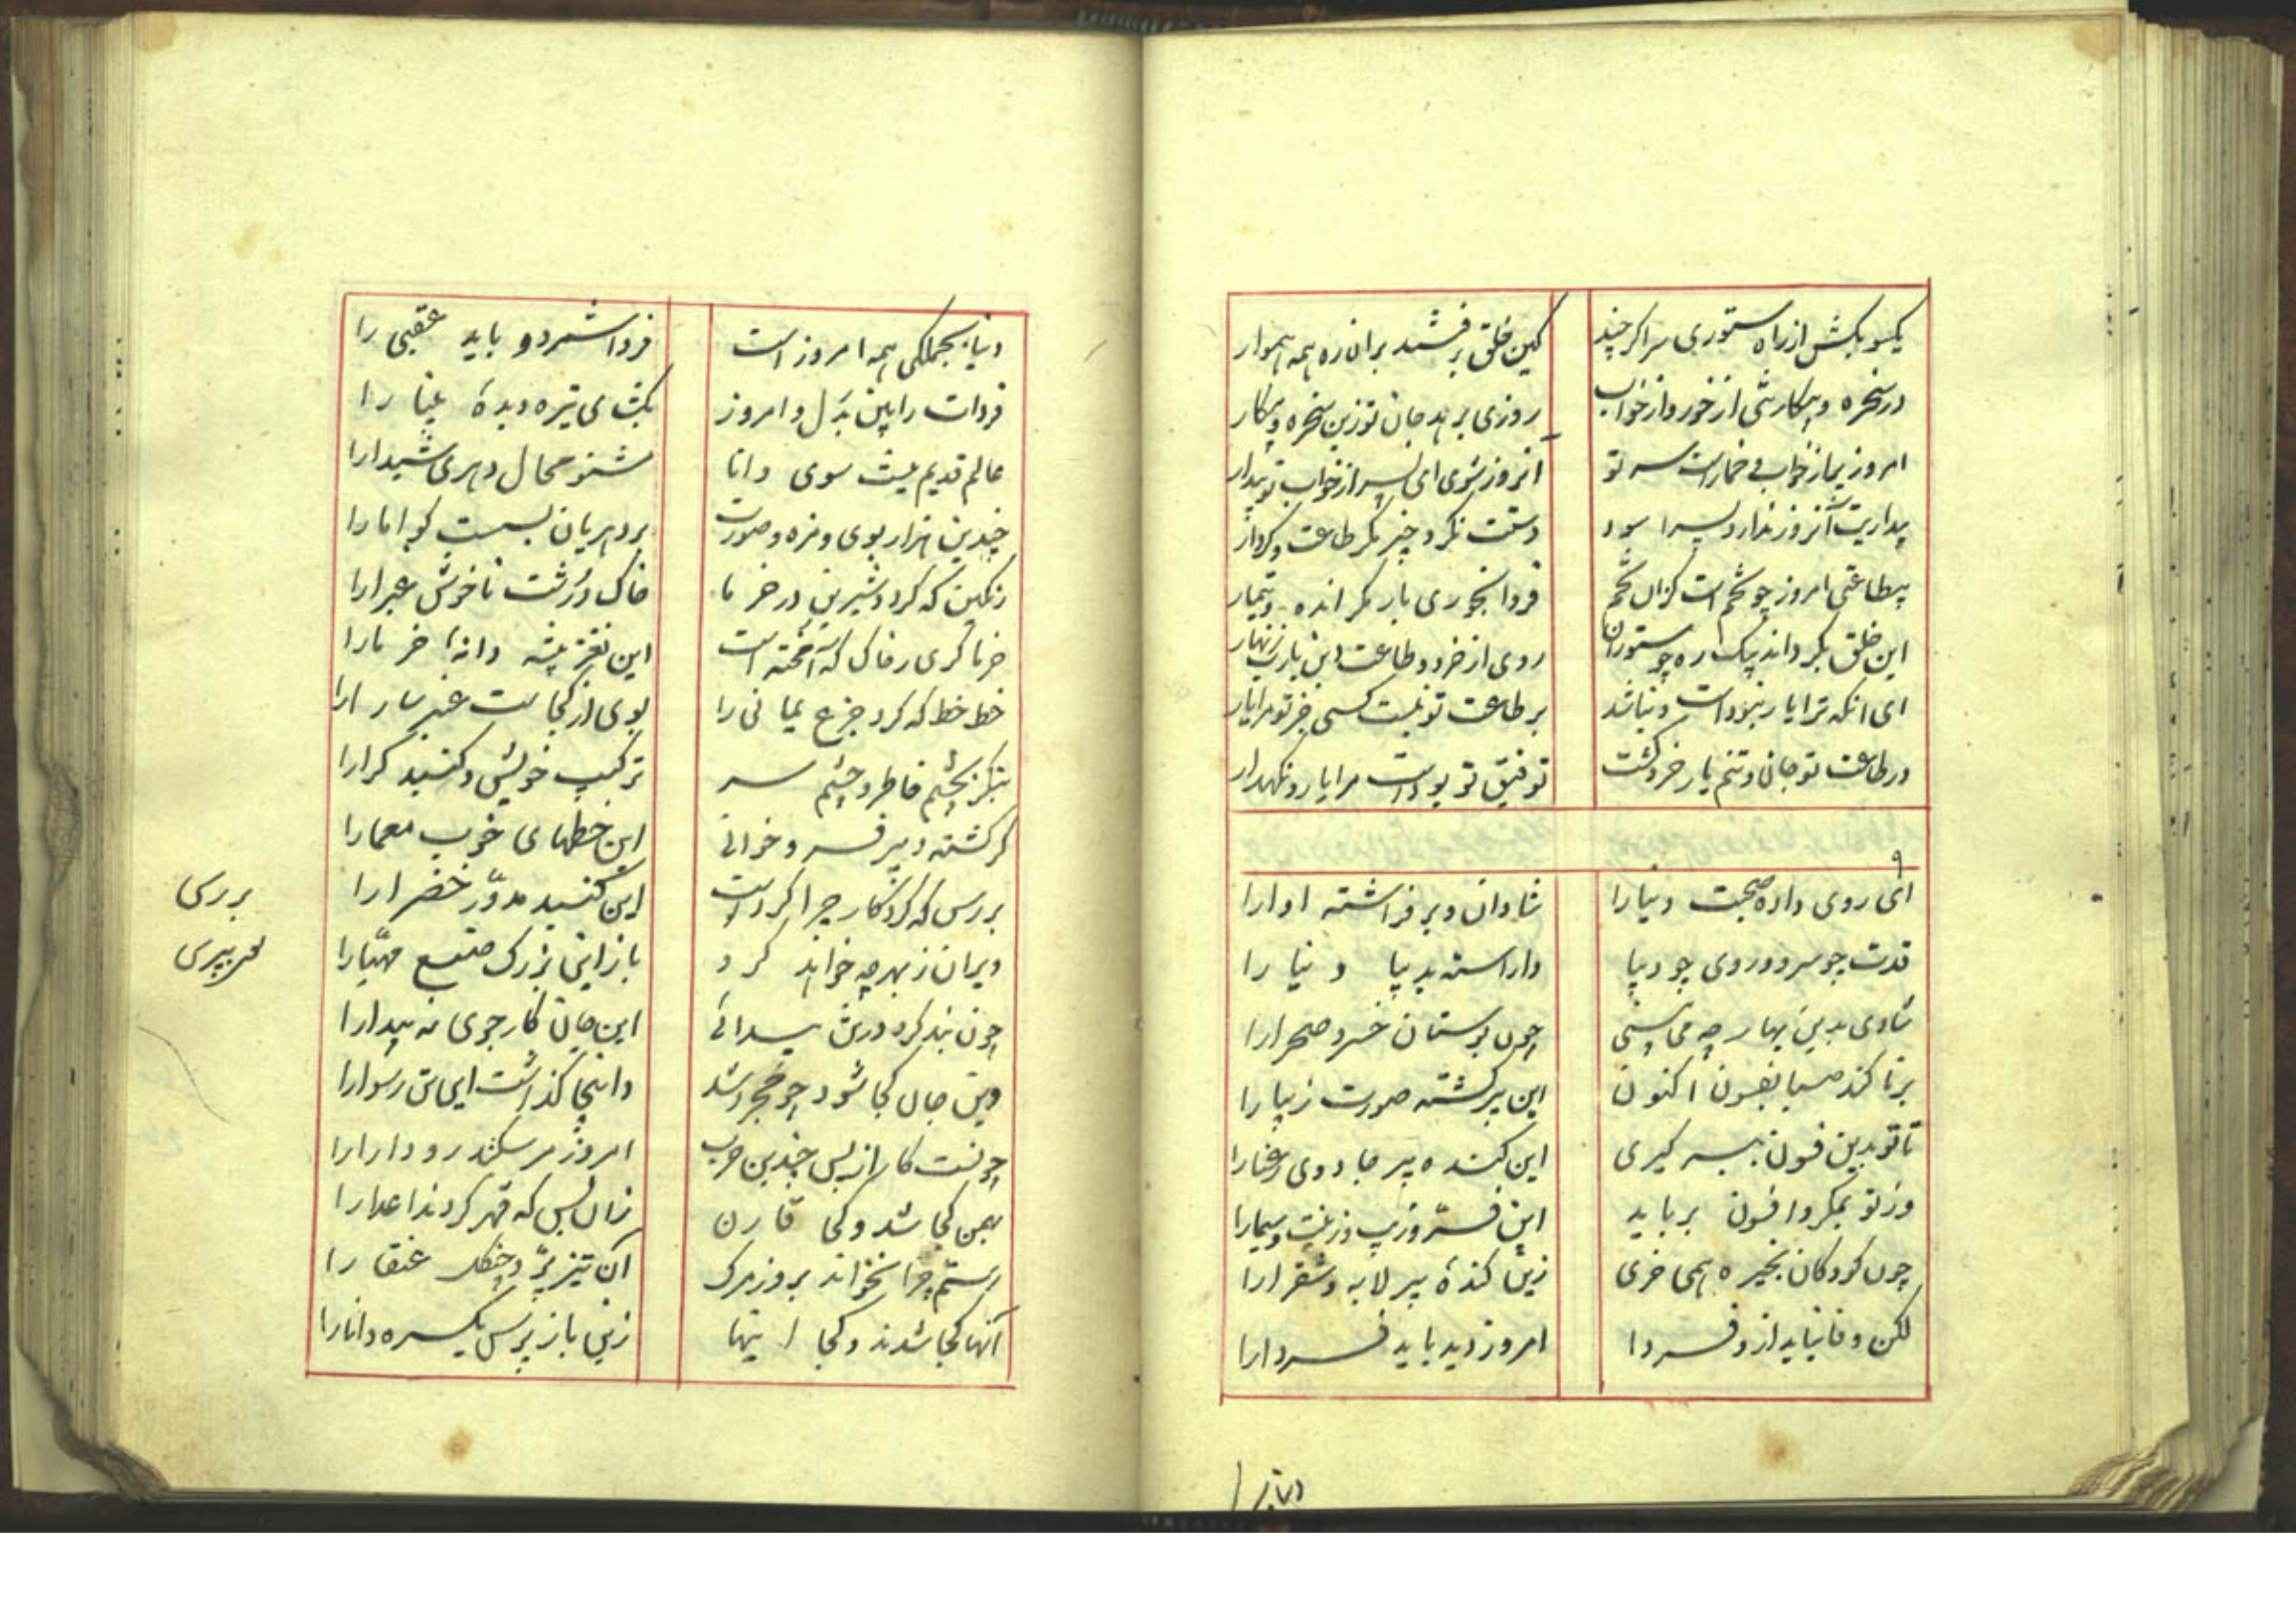 یکسو بکش از راه ستوری سر اگر چند
کین خلق برفتند بران ره همه هموار
در سخره و بیکار تنی از خور و از خواب
روزی برهد جان تو زین سخره و بیکار
امروز پر از خواب و خمار است سر تو
آنروز شوی ای پسر از خواب تو بیدار
بیداریت آنروز ندارد پسرا سود
دستت نگرد چیز مگر طاعت و کردار
بیطاعتی امروز چو تخمست کزان تخم
فردا نخوری بار مگر انده و تیمار
این خلق بکردند بیک ره چو ستوران
روی از خرد و طاعت این بارب زنهار
ای انکه ترا یار نبوداست و نباشد
بر طاعت تو نیست کسی جز تو مرا یار
در طاعت تو جان و تنم یار خرد گشت
توفیق تو بوداست مرا یار و نکهدار
۹
ای روی داده صحبت دنیا را
شادان و بر فراشته اوا را
قدت چو سرو و روی چو دیبا
واراسته بدیبا دنیا را
شادی بدین بهار چه می بینی
چون بوستان خسرو صحرا را
برنا کند صبا بفسون اکنون
این پیر کشته صورت زیبا را
تا تو بدین فسون ببر گیری
این کنده پیر جادوی رعنا را
وز تو بمکر و افسون برباید
این فر و زیب و زینت و سیما را
چون کودکان بخیره همی خری
زین کنده پیر لابه و شقرا را
لکن وفا نیاید ازو فردا
امروز دید باید فردا را
دنیا
دنیا بجملکی همه امروز است
فردا شمرد و باید عقبی را
فردات را ببین بدل و امروز
بکشای تیزه دیدهٔ بینا را
عالم قدیم نیست سوی دانا
مشنو محال دهری شیدا را
چندین هزار بوی و مزه و صورت
بر دهریان بسست کوا ما را
رنگین که کرد و شیرین در خرما
خاک درشت ناخوش غبرا را
خرما کری ز خاک که آمخته است
این نغز پیشه دانهٔ خرما را
خط خط که کرد جزع یمانی را
بوی از کجاست عنبر سارا را
بنکر بچشم خاطر و چشم سر
ترکیب خویش و کنبد کرا را
کر کشته دبیر فرو خوانی
این خطهای خوب معما را
بررس که کردکار چرا کردست
این کنبد مدوّر خضرا را
ویران ز بهر چه خواهد کرد
باز این بزرک صنع مهیّا را
چون بند کرد در تن پیدائی
این جان کارجوی نه پیدا را
وین جان کجا شود چو مجرد شد
وانجا گذاشت این تن رسوا را
چونست کار از پس چندین حرب
امروز مر سکندر و دارا را
بهمن کجا شد و کجا قارن
زان پس که قهر کردند اعدا را
رستم چرا نخواند بروز مرک
آن تیز پرّ و چنکل عنقا را
آنها کجا شدند و کجا اینها
زین باز پرس یکسره دانا را
بررسی